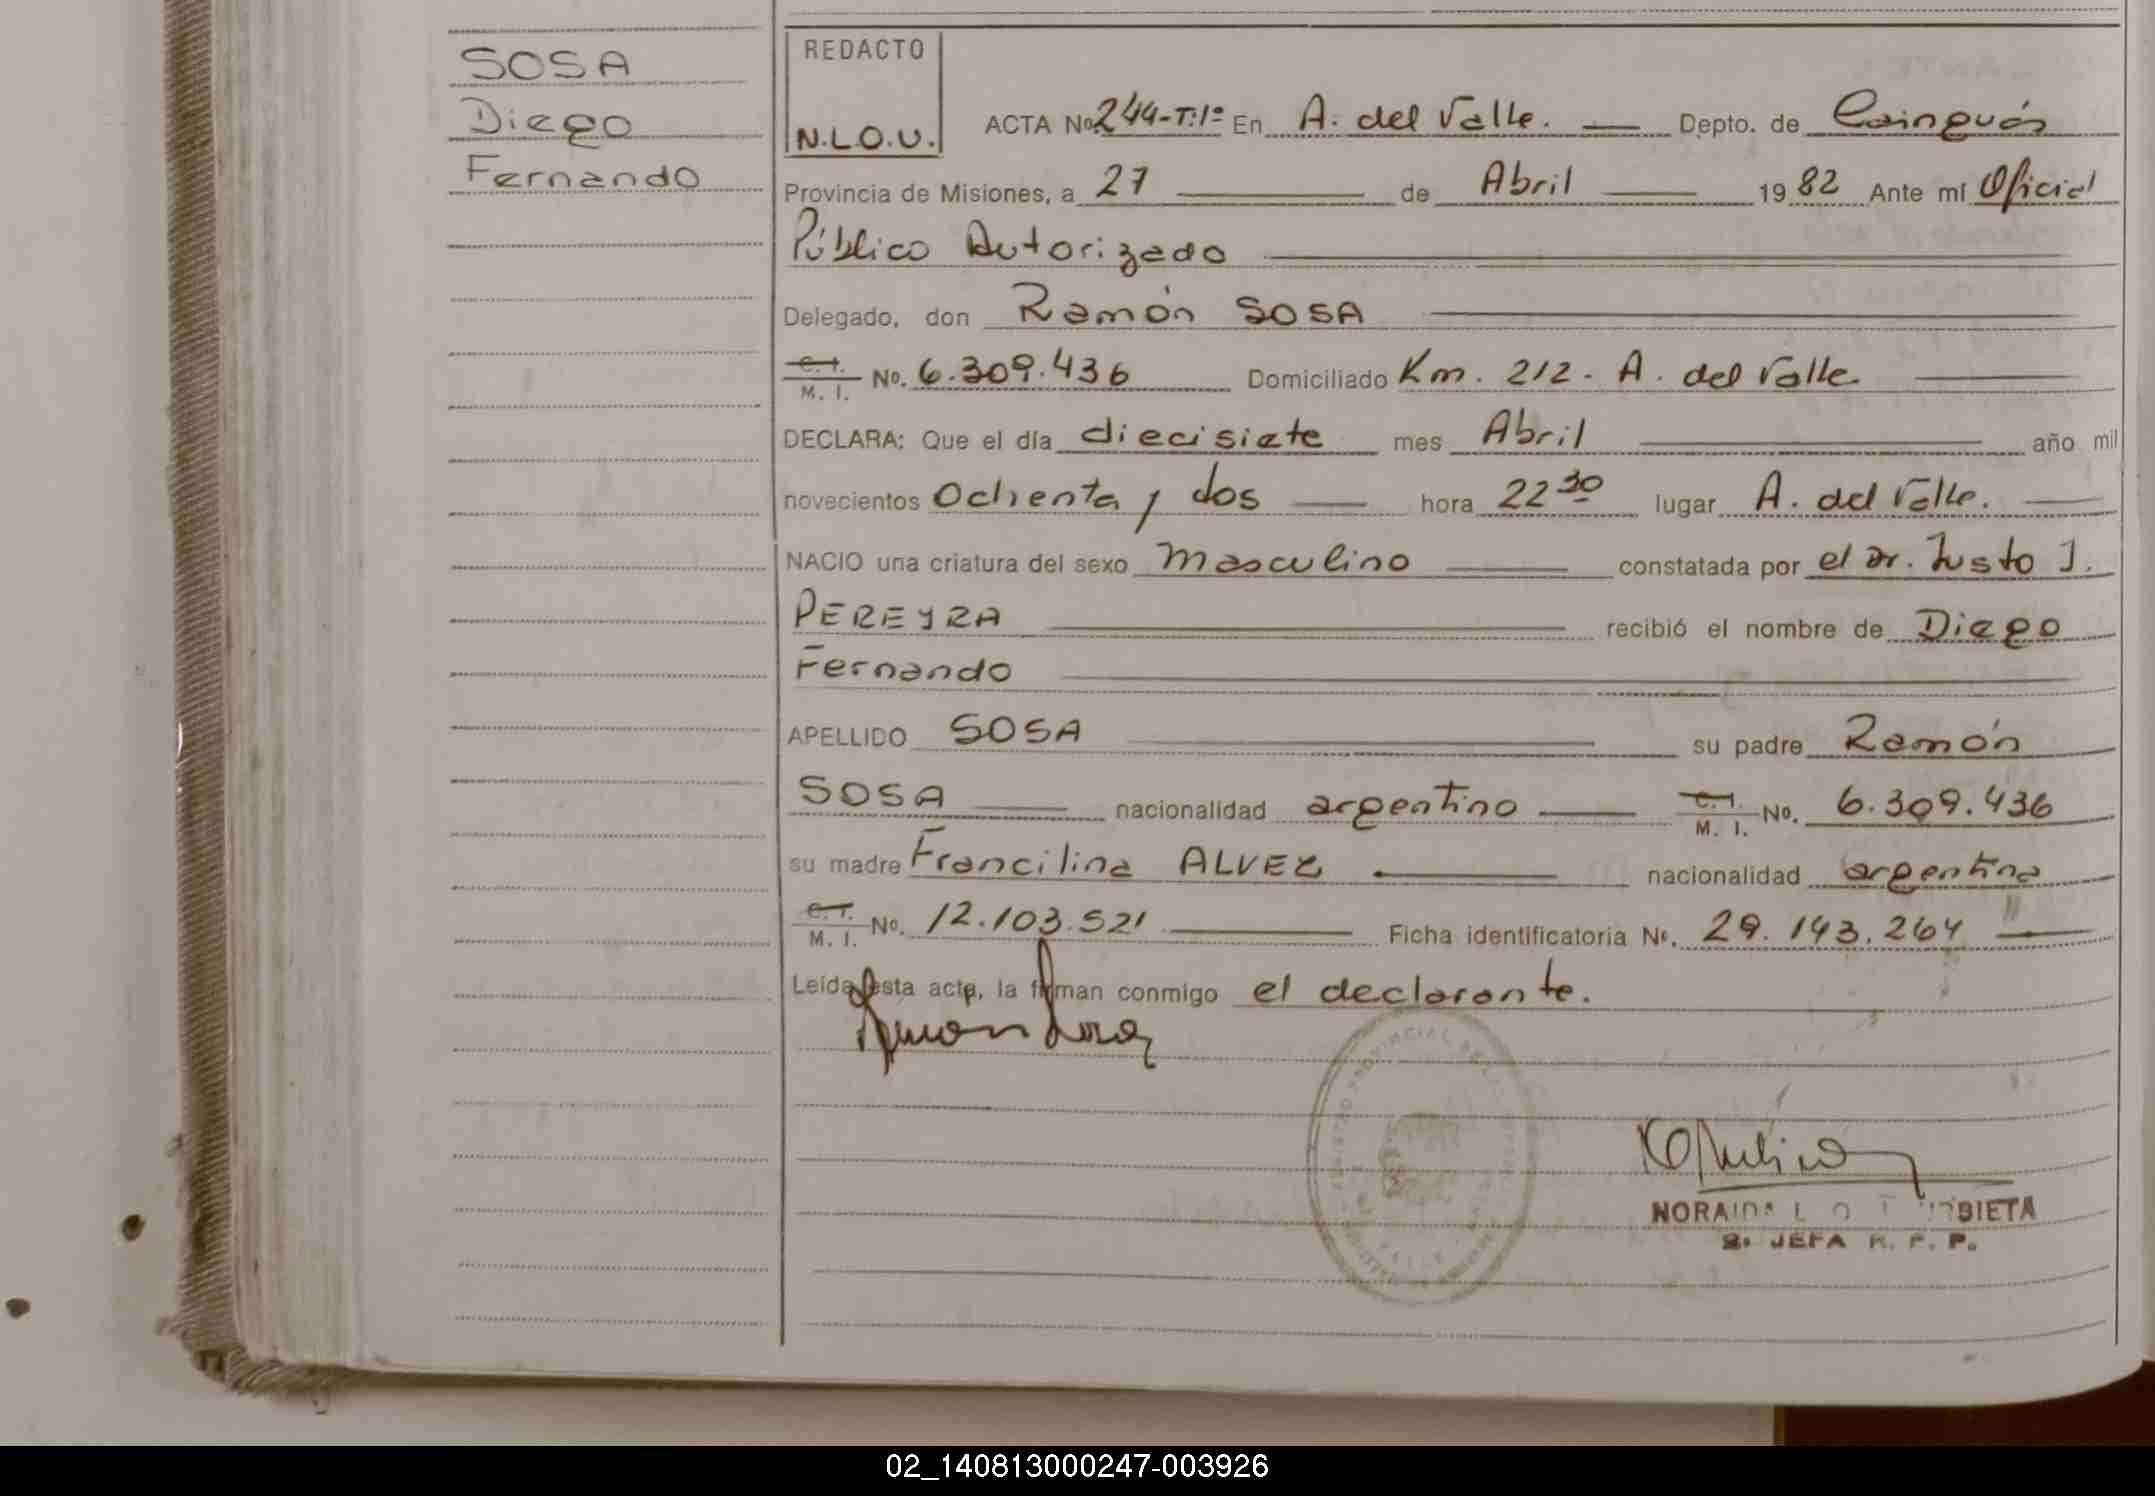 SOSA
Diego
Fernando
REDACTO
N.L.O.U.
ACTA No. 244-T:1º En A. del Valle. — Depto. de Cainguás
Provincia de Misiones, a 27 — de Abril — 1982 Ante mí Oficial
Público Autorizado
Delegado, don Ramón SOSA
C.I.
M. I. No. 6.309.436 Domiciliado Km. 212 - A. del Valle
DECLARA: Que el día diecisiete mes Abril — año mil
novecientos Ochenta y dos — hora 22 30 lugar A. del Valle. —
NACIO una criatura del sexo Masculino — constatada por el Dr. Justo J.
PEREYRA — recibió el nombre de Diego
Fernando
APELLIDO SOSA — su padre Ramón
SOSA — nacionalidad argentino — C.I.
M. I. No. 6.309.436
su madre Francilina ALVEZ — nacionalidad argentina
C.I.
M. I. No. 12.103.521 — Ficha identificatoria No. 29.143.264 —
Leída esta acta, la firman conmigo el declarante.
Ramon Sosa
REGISTRO PROVINCIAL DE LAS
VALLE
NORAIDA L
2º JEFA R. P. P.
02_140813000247-003926